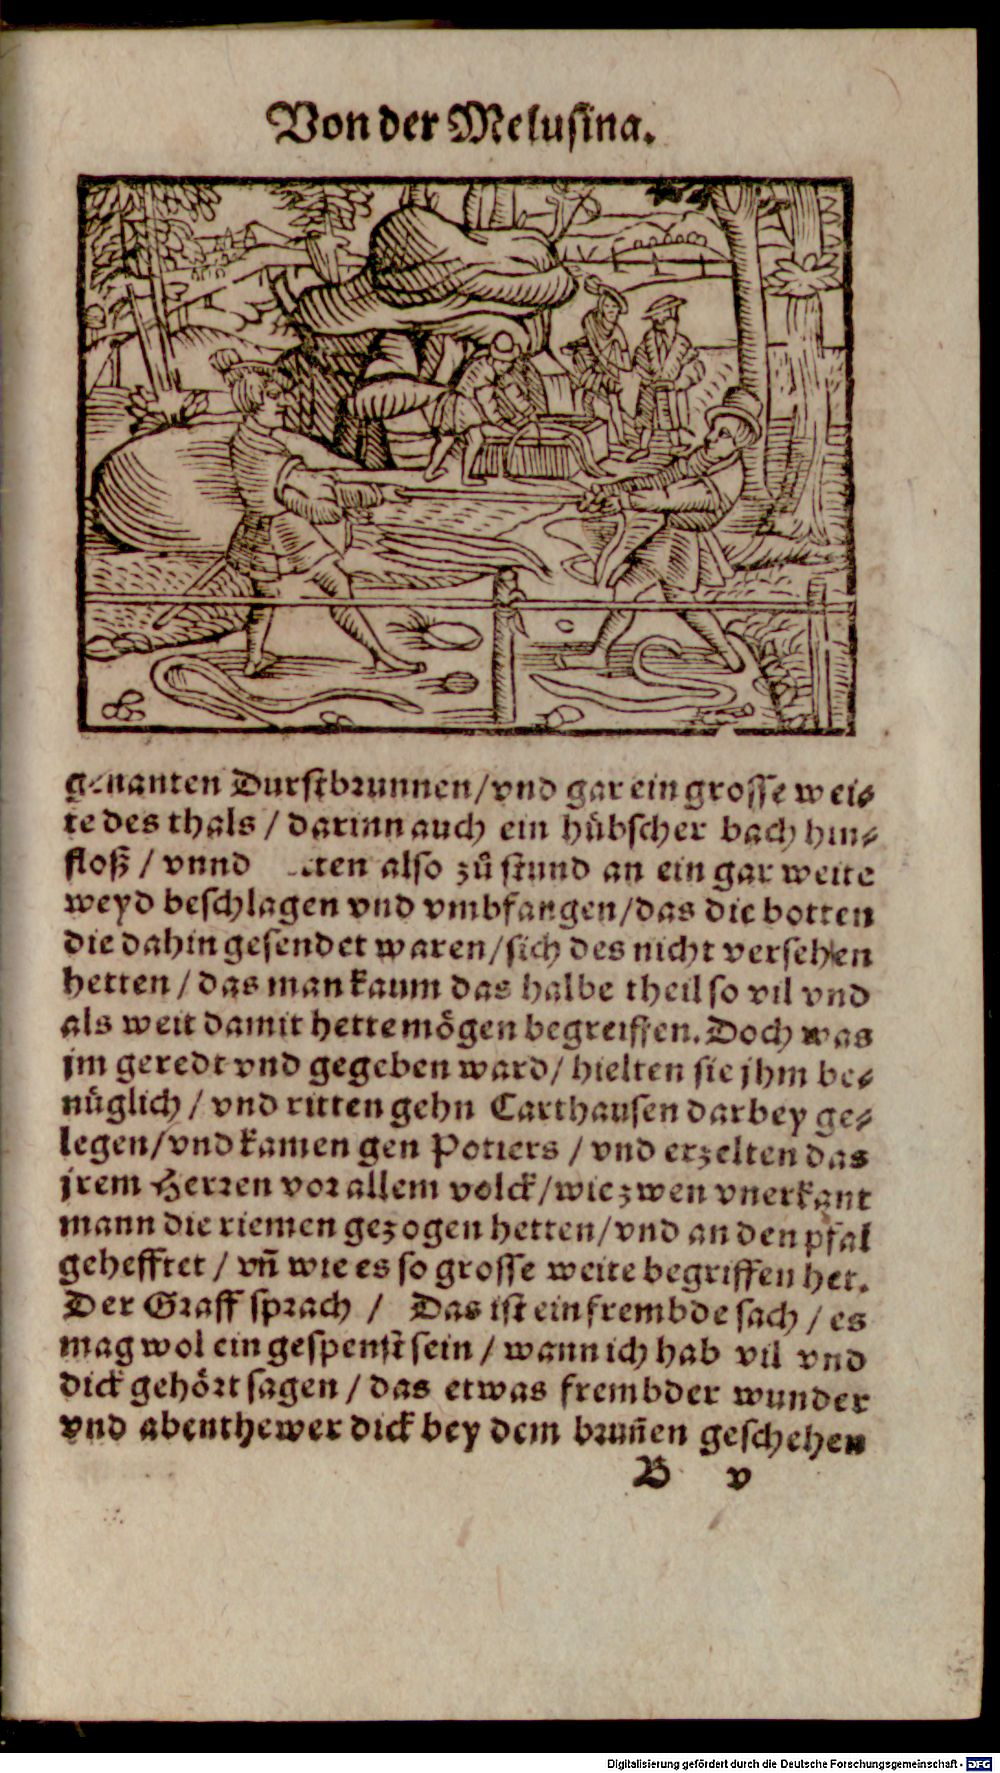 Von der Melusina.
genanten Durstbrunnen/vnd gar ein grosse wei⸗
te des thals / darinn auch ein hübscher bach hin⸗
floß / vnnd also zů stund an ein gar weite
weyd beschlagen vnd vmbfangen/das die botten
die dahin gesendet waren/sich des nicht versehen
hetten / das man kaum das halbe theil so vil vnd
als weit damit hette mögen begreiffen. Doch was
jm geredt vnd gegeben ward/ hielten sie jhm be⸗
nüglich / vnd ritten gehn Carthausen darbey ge⸗
legen/vnd kamen gen Potiers / vnd erzelten das
jrem Herren vor allem volck/wie zwen vnerkant
mann die riemen gezogen hetten/vnd an den pfal
gehefftet / vñ wie es so grosse weite begriffen het.
Der Graff sprach / Das ist ein frembde sach / es
mag wol ein gespenst sein / wann ich hab vil vnd
dick gehört sagen / das etwas frembder wunder
vnd abenthewer dick bey dem bruñen geschehen
B v
Digitalisierung gefördert durch die Deutsche Forschungsgemeinschaft - DFG